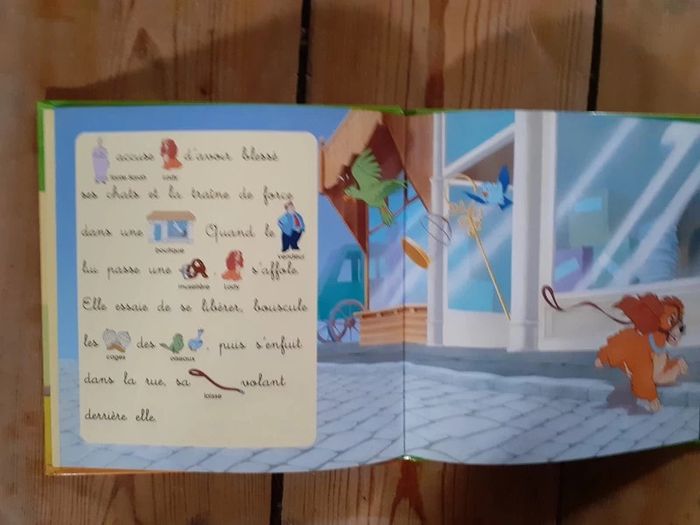 accuse d'avoir blessé
tante Sarah Lady
ses chats et la traîne de force
dans une . Quand le
boutique vendeur
lui passe une , s'affole.
muselière Lady
Elle essaie de se libérer, bouscule
les des , puis s'enfuit
cages oiseaux
dans la rue, sa volant
laisse
derrière elle.